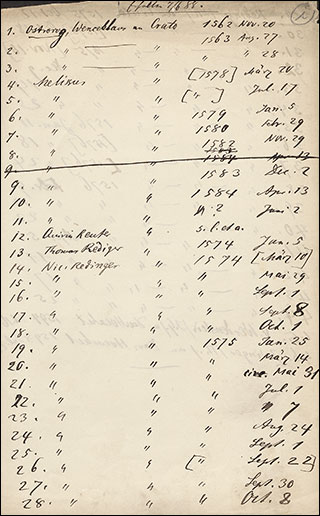 1. Ostrorog, Wenceslaus an Crato 1562 Nov. 20
2. " " 1563 Aug. 27
3. " " " " 28
4. Melissus " [1578] März 20
5. " " [" ] Jul. 17
6. " " 1579 Jan. 5
7. " " 1580 Febr. 29
8. " " 1582 Nov. 29
9. 1584 Apr. 13
9. " " 1583 Dec. 2
10. " " 1584 Apr. 13
11. " " " 2 Juni 2
12. " s. l. et a.
13. Thomas Rediger " 1574 Jan. 5
14. Nic. Redinger " 1574 [März 10]
15. " " " Mai 29
16. " " " Sept. 1
17. " " " Sept. 8
18. " " " Oct. 1
19. " " 1575 Jan. 25
20. " " " März 14
21. " " " circ. Mai 31
22. " " " Jul. 1
23. " " " " 7
24. " " " Aug. 24
25. " " " Sept. 1
26. " " [" Sept. 22]
27. " " " Sept. 30
28. " " " Oct. 8